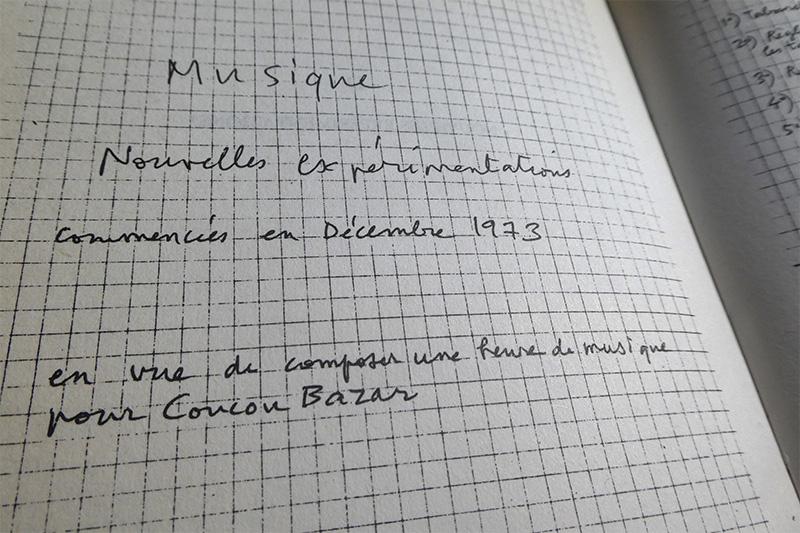 Musique
Nouvelles expérimentations
commencées en Décembre 1973
en vue de composer une heure de musique
pour Coucou Bazar
1°)
2°)
3°)
4°)
5°